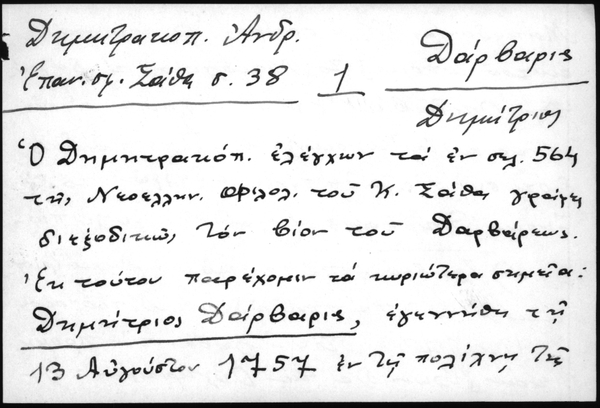 Δημητρακοπ. Ἀνδρ.
Ἐπαν. σφ. Σάθα σ. 38
1
Δάρβαρις
Δημήτριος
Ὁ Δημητρακόπ. ἐλέγχων τὰ ἐν σελ. 564
τῆς Νεοελλην. Φιλολ. τοῦ Κ. Σάθα γράφει
διεξοδικῶς τὸν βίον τοῦ Δαρβάρεως.
Ἐκ τούτου παρέχομεν τὰ κυριώτερα σημεῖα:
Δημήτριος Δάρβαρις, ἐγεννήθη τῇ
13 Αὐγούστου 1757 ἐν τῇ πολίχνῃ τῆς